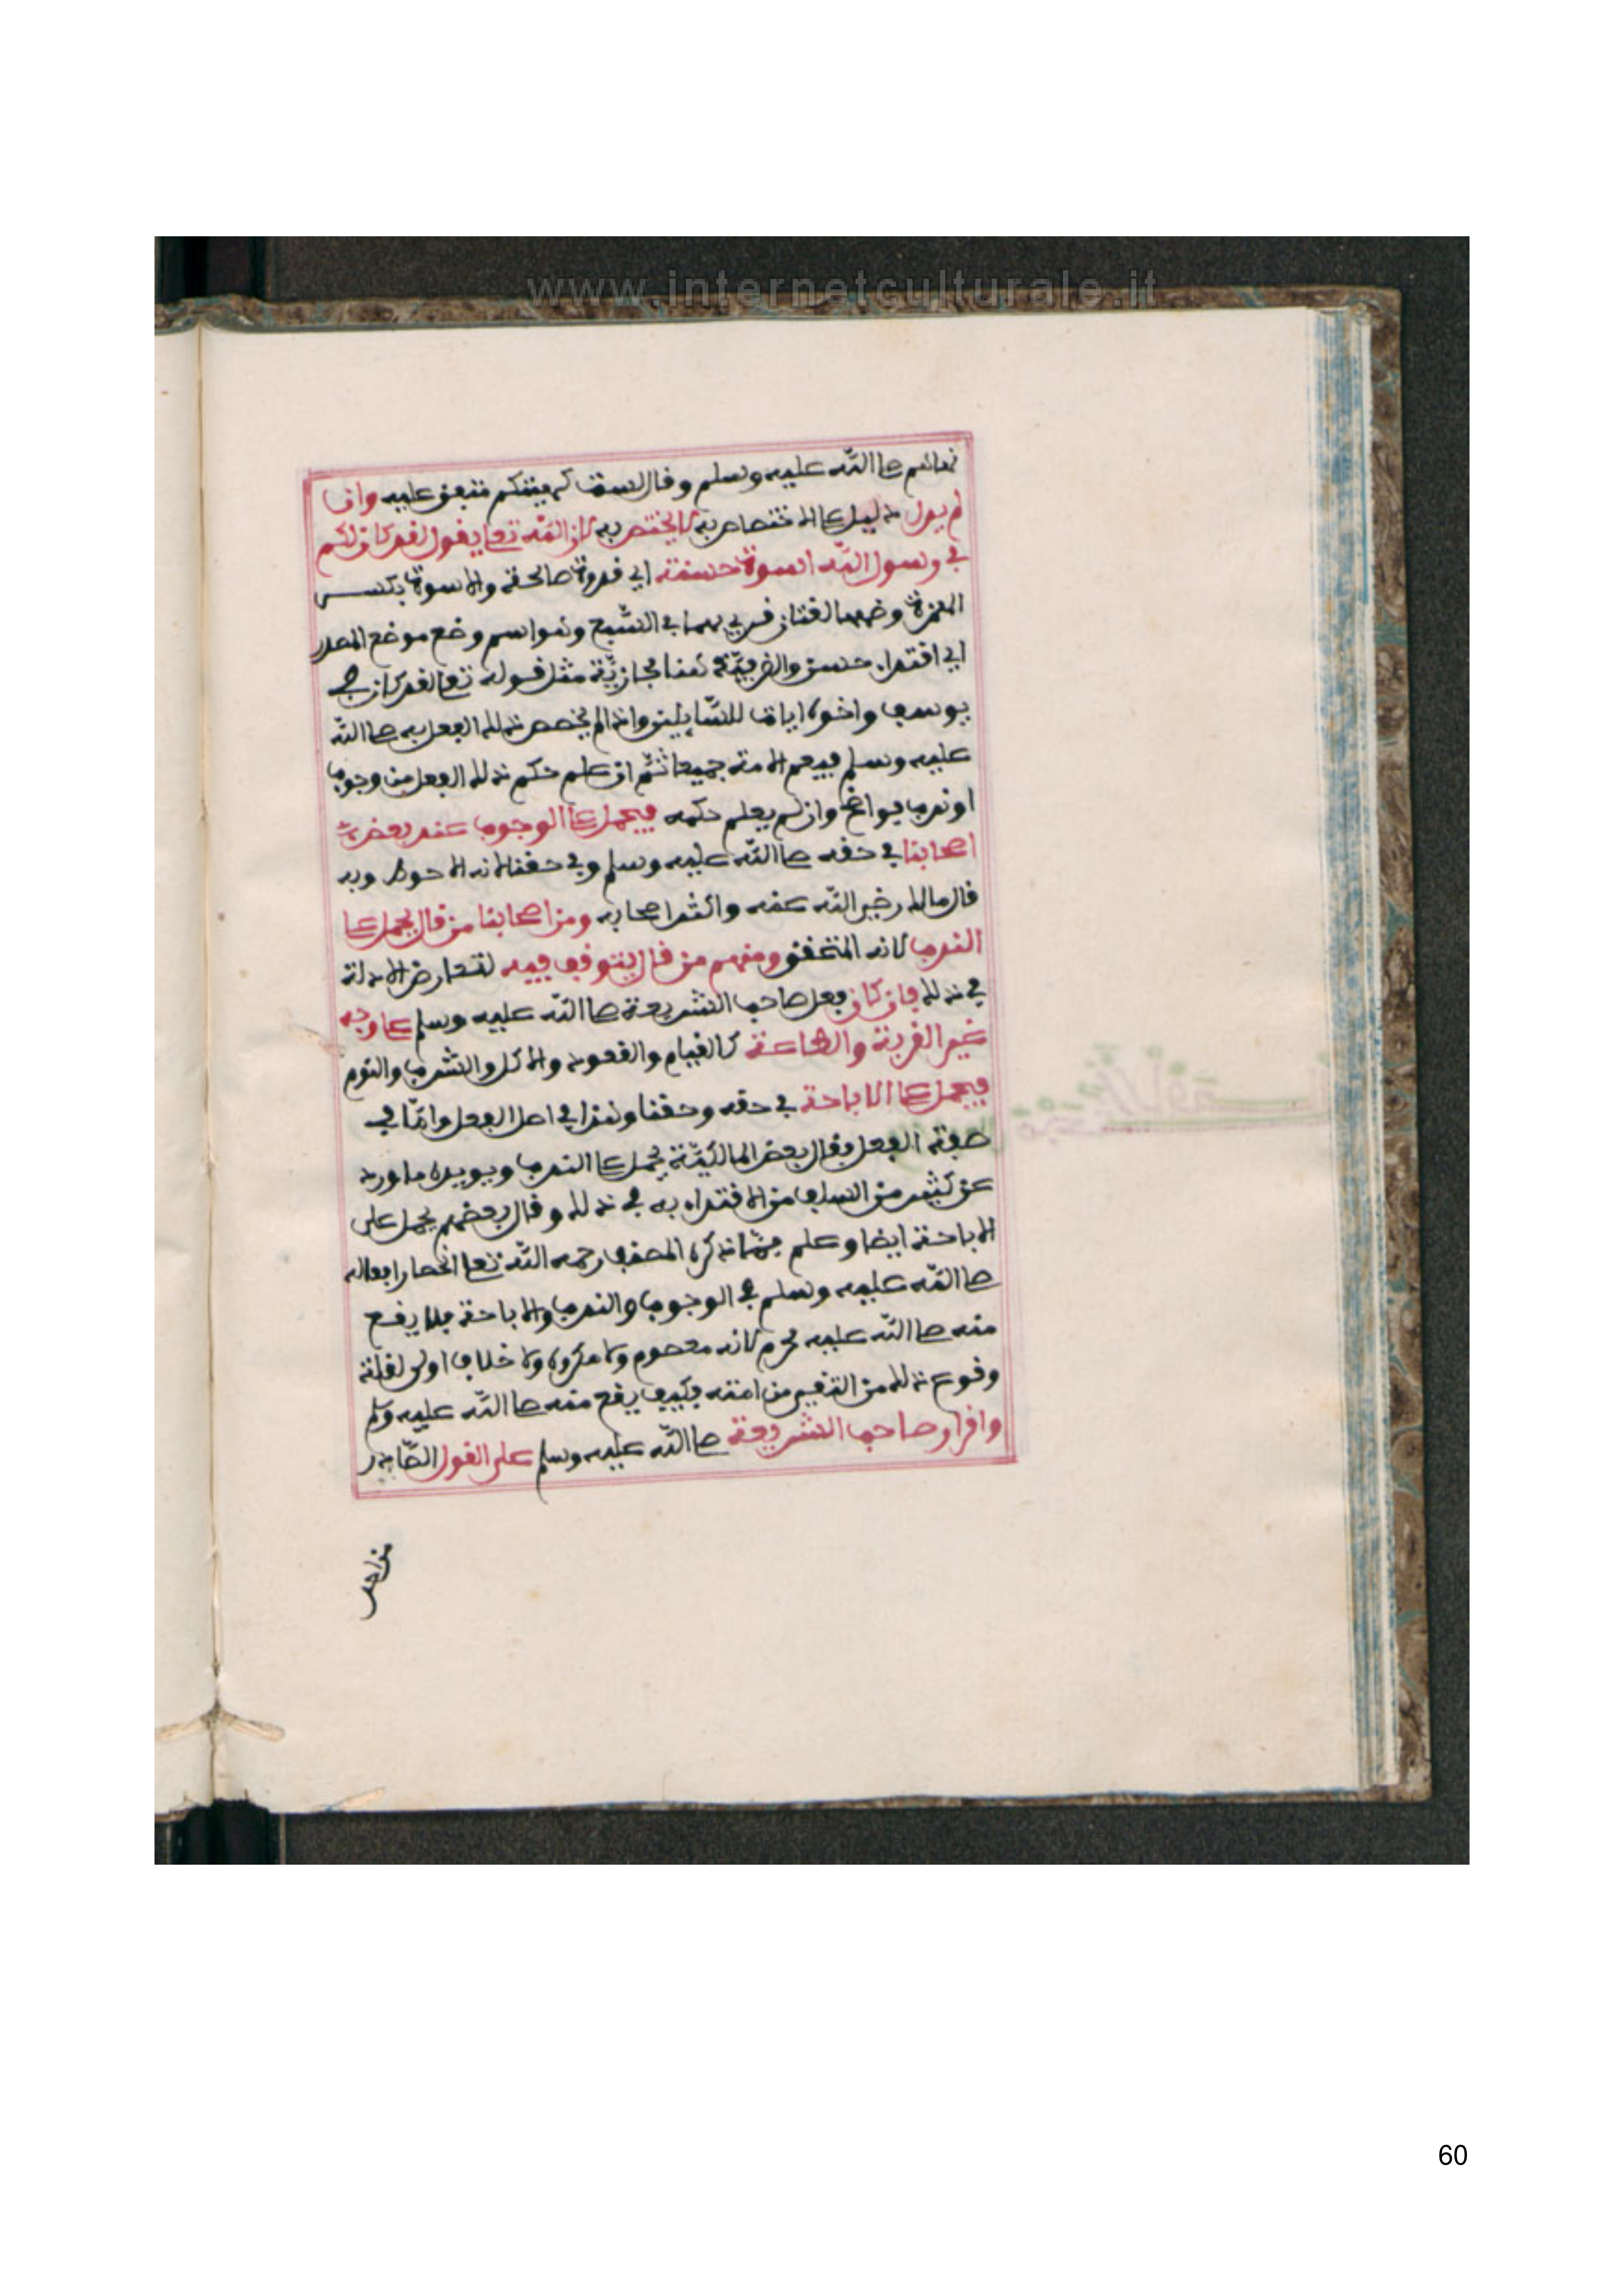 www.internetculturale.it
نهاهم صلى الله عليه وسلم وقال لست كهيئتكم متفق عليه وان
لم يدل دليل على الاختصاص به لا يختص به لان الله تعلى يقول لقد كان لكم
في رسول الله اسوة حسنة اي قدوة صالحة والاسوة بكسر
الهمزة وضمها لغتان قرئ بهما في السبع وهو اسم وضع موضع المصدر
اي اقتداء حسن والظرفية هنا مجازية مثل قوله تعلى لقد كان في
يوسف واخوته ايات للسايلين واذا لم يخصص ذلك الفعل به صلى الله
عليه وسلم فيعم الامة جميعا ثم ان علم حكم ذلك الفعل من وجوب
او ندب فواضح وان لم يعلم حكمه فيحمل على الوجوب عند بعض
اصحابنا في حقه صلى الله عليه وسلم وفي حقنا لانه الاحوط وبه
قال مالك رضي الله عنه واكثر اصحابه ومن اصحابنا من قال يحمل على
الندب لانه المتحقق ومنهم من قال يتوقف فيه لتعارض الادلة
في ذلك فان كان فعل صاحب الشريعة صلى الله عليه وسلم على وجه
غير القربة والطاعة كالقيام والقعود والاكل والشرب والنوم
فيحمل على الاباحة في حقه وحقنا وهذا في اصل الفعل واما في
صفة الفعل فقال بعض المالكية يحمل على الندب ويويده ما ورد
عن كثير من السلف من الاقتداء به في ذلك وقال بعضهم يحمل على
الاباحة ايضا وعلم مما ذكره المصنف رحمه الله تعلى انحصار افعاله
صلى الله عليه وسلم في الوجوب والندب والاباحة فلا يقع
منه صلى الله عليه محرم لانه معصوم ولا مكروه ولا خلاف اولى لقلة
وقوع ذلك من التقي من امته فكيف يقع منه صلى الله عليه وسلم
واقرار صاحب الشريعة صلى الله عليه وسلم على القول الصادر
من احد
60